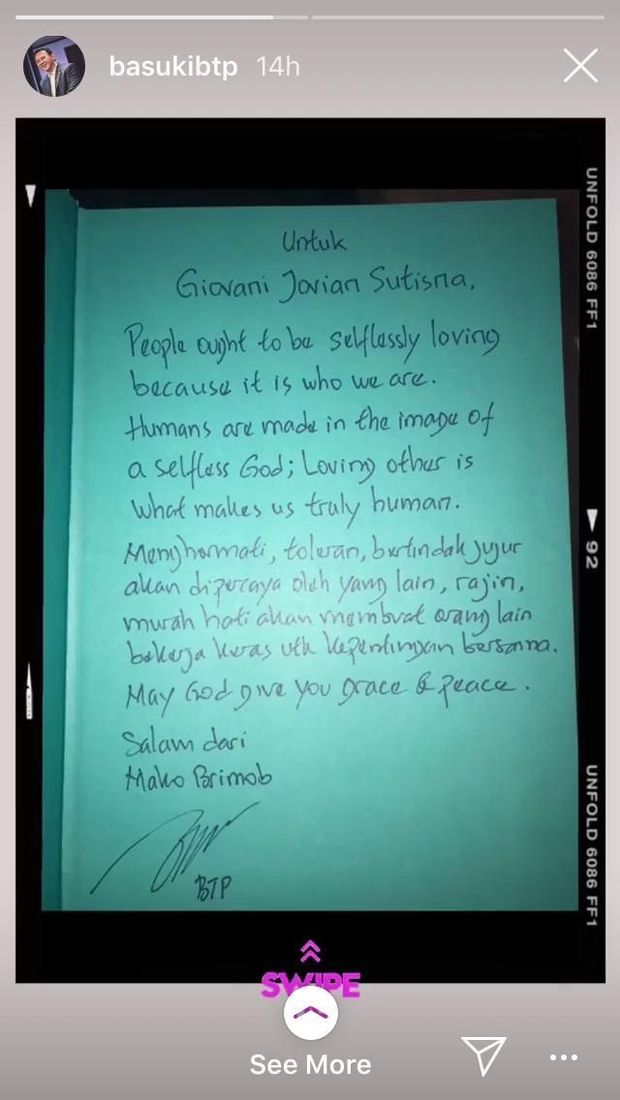 basukibtp 14h
UNFOLD 6086 FF1
Untuk
Giovani Jovian Sutisna,
People ought to be selflessly loving
because it is who we are.
Humans are made in the image of
a selfless God; Loving other is
what makes us truly human.
Menghormati, toleran, bertindak jujur
akan dipercaya oleh yang lain, rajin,
murah hati akan membuat orang lain
bekerja keras utk kepentingan bersama.
May God give you grace & peace.
Salam dari
Mako Brimob
BTP
92
UNFOLD 6086 FF1
SWIPE
See More